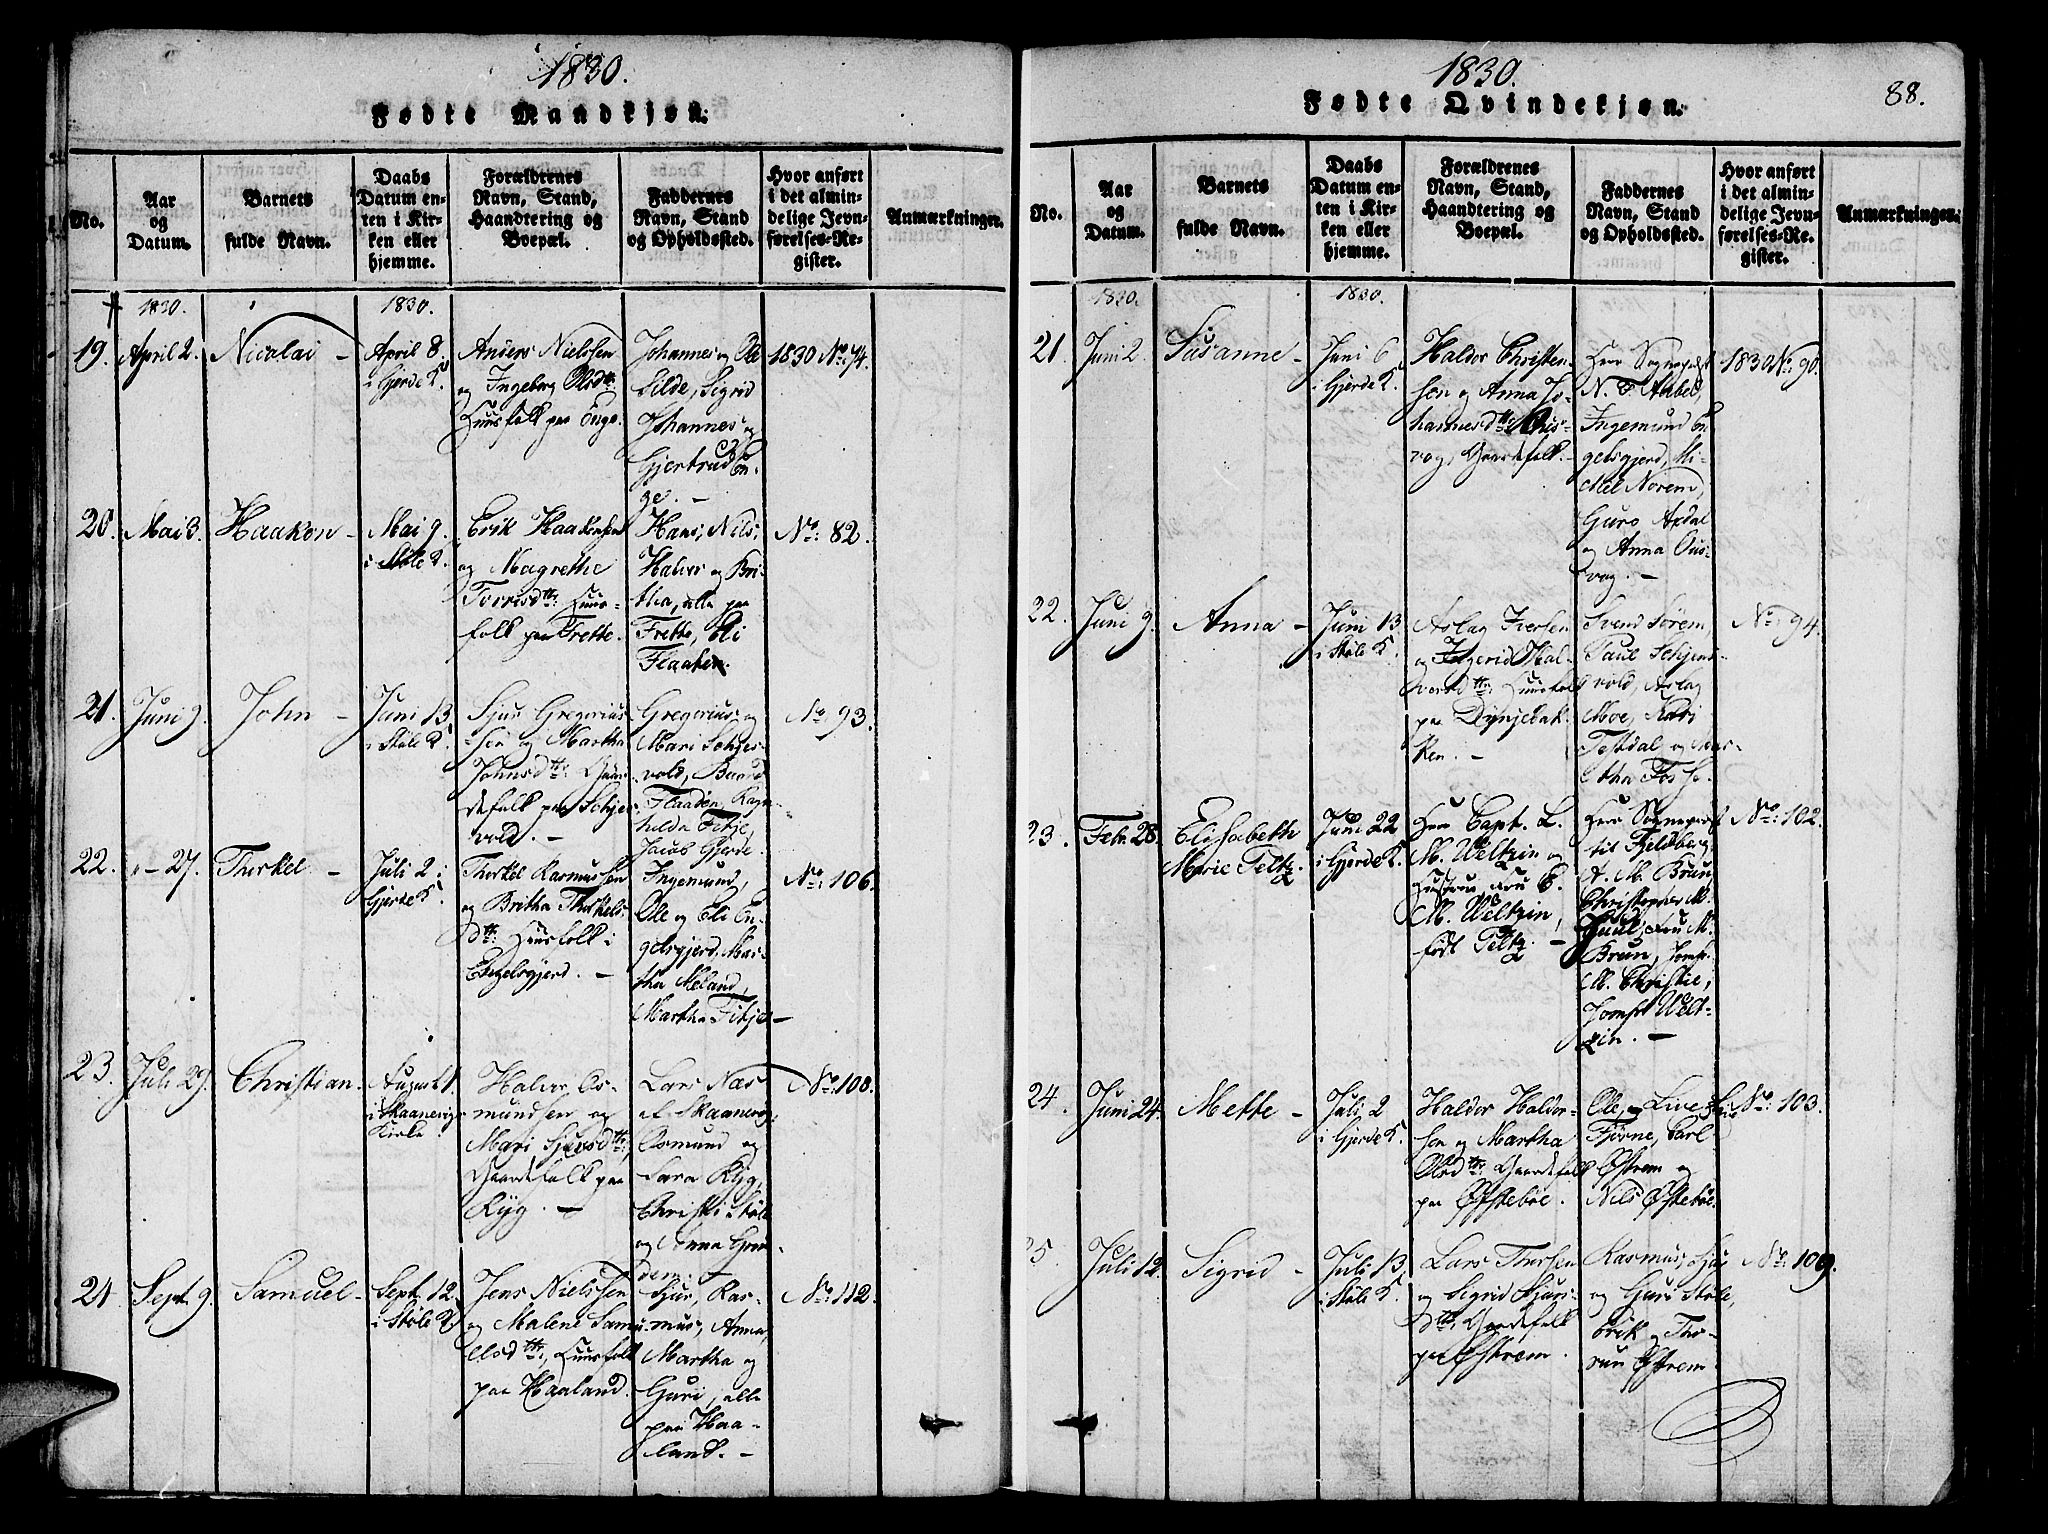 1830.
Fødte Mandkjøn.
No.
Aar
og
Datum.
Barnets
fulde Navn.
Daabs
Datum en-
ten i Kir-
ken eller
hjemme.
Forældrenes
Navn, Stand,
Haandtering og
Boepæl.
Faddernes
Navn, Stand
og Opholdssted.
Hvor anført
i det almin-
delige Jevn-
førelses-Re-
gister.
Anmærkninger.
1830.
1830.
19.
April 2.
Nicolai –
April 8.
i Gjerde K.
Anders Nielssen
og Ingeborg Olsdtr:
Huusfolk paa Enge.
Johannes og Ole
Eilde, Sigrid
Johannes og
Gjertrud En-
ge. –
1830 No: 74.
20.
Mai 3.
Haakon –
Mai 9.
i Støle K.
Erik Haakensen
og Magrethe
Torrisdtr: Huus-
folk paa Frette.
Hans, Nils,
Halver og Bri-
tha, alle paa
Frette, Eli
Flaaten.
No: 82.
21.
Juni 9.
John –
Juni 13.
i Støle K.
Sjur Gregorius
sen og Martha
Johnsdtr: Gaar-
defolk paa Schjes-
vold. –
Gregorius og
Mari Schjes-
vold, Baard
Flaaden, Ragn-
hilda Fikje,
Jacob Gjerde.
No: 93.
22.
" – 27.
Thorkel –
Juli 2 i
Gjerde K.
Thorkel Rasmussen
og Britha Thorkels-
dtr: Huusfolk i
Engelsgjerd. –
Ingemund,
Ole og Eli En-
gelsgjerd, Mar-
tha Meland,
Martha Fikje –
No: 106.
23.
Juli 29.
Christian.
August 1.
i Skaanevig
Kirke.
Halver Os-
mundsen og
Mari Sjursdtr:,
Gaardefolk paa
Ryg. –
Lars Næs
af Skaanevig,
Osmund og
Sara Ryg,
Christi Støle
og Anna Grin-
dem. –
No: 108.
24
Sept. 9.
Samuel –
Sept. 12.
i Støle K.
Jens Nielssen
og Malene Samu-
elsdtr:, Huusfolk
paa Haaland.
Sjur, Ras-
mus, Anna,
Martha og
Guri, alle
paa Haa-
land. –
No: 112.
1830.
88.
Fødte Qvindekjøn.
No.
Aar
og
Datum.
Barnets
fulde Navn.
Daabs
Datum en-
ten i Kir-
ken eller
hjemme.
Forældrenes
Navn, Stand,
Haandtering og
Boepæl.
Faddernes
Navn, Stand
og Opholdssted.
Hvor anført
i det almin-
delige Jevn-
førelses-Re-
gister.
Anmærkninger.
1830.
1830.
21.
Juni 2.
Susanne –
Juni 6
i Gjerde K.
Haldor Christen-
sen og Anna Jo-
hannesdtr:
vog, Gaardefolk. –
Herr Sognepræst
N.
Ingemund En-
gelsgjerd, Mi-
chel Norem,
Guro Axdal
og Anna Ous-
vog. –
1830 No: 90.
22.
Juni 9.
Anna –
Juni 13
i Støle K.
Aslag Iversen
og Ingerid Hal-
versdtr: Huusfolk
paa Dynjebak-
ken. –
Svend Sørem,
Paul Schjens-
vold, Aslag
Moe, Kari
Testdal og Mar-
tha Fosse.
No: 94.
23.
Febr. 28.
Elisabeth
Marie Feltz
Juni 22
i Gjerde K.
Herr Capt. L.
M. Weltzin og
Hustru, Fru E.
M. Weltzin,
født Feltz. –
Herr Sognepræst
til Fjeldberg
A. M. Brun,
Christopher M.
Juul, Fru M.
Brun, Jomfr.
M. Christie,
Jomfr Welt-
zin. –
No: 102.
24.
Juni 24.
Mette –
Juli 2
i Gjerde K.
Haldor Haldor-
sen og Martha
Olsdtr: Gaardefolk
paa Østebøe.
Ole, og Live
Fjørne, Carl
Østrem og
Nils Østebøe.
No: 103.
25.
Juli 12.
Sigrid –
Juli 13.
i Støle K.
Lars Thorsen
og Sigrid Sjurs-
dtr: Gaardefolk
paa Østrem.
Rasmus, Sju
og Guri Støle,
Erik og Tho-
run Østrem.
No: 109.